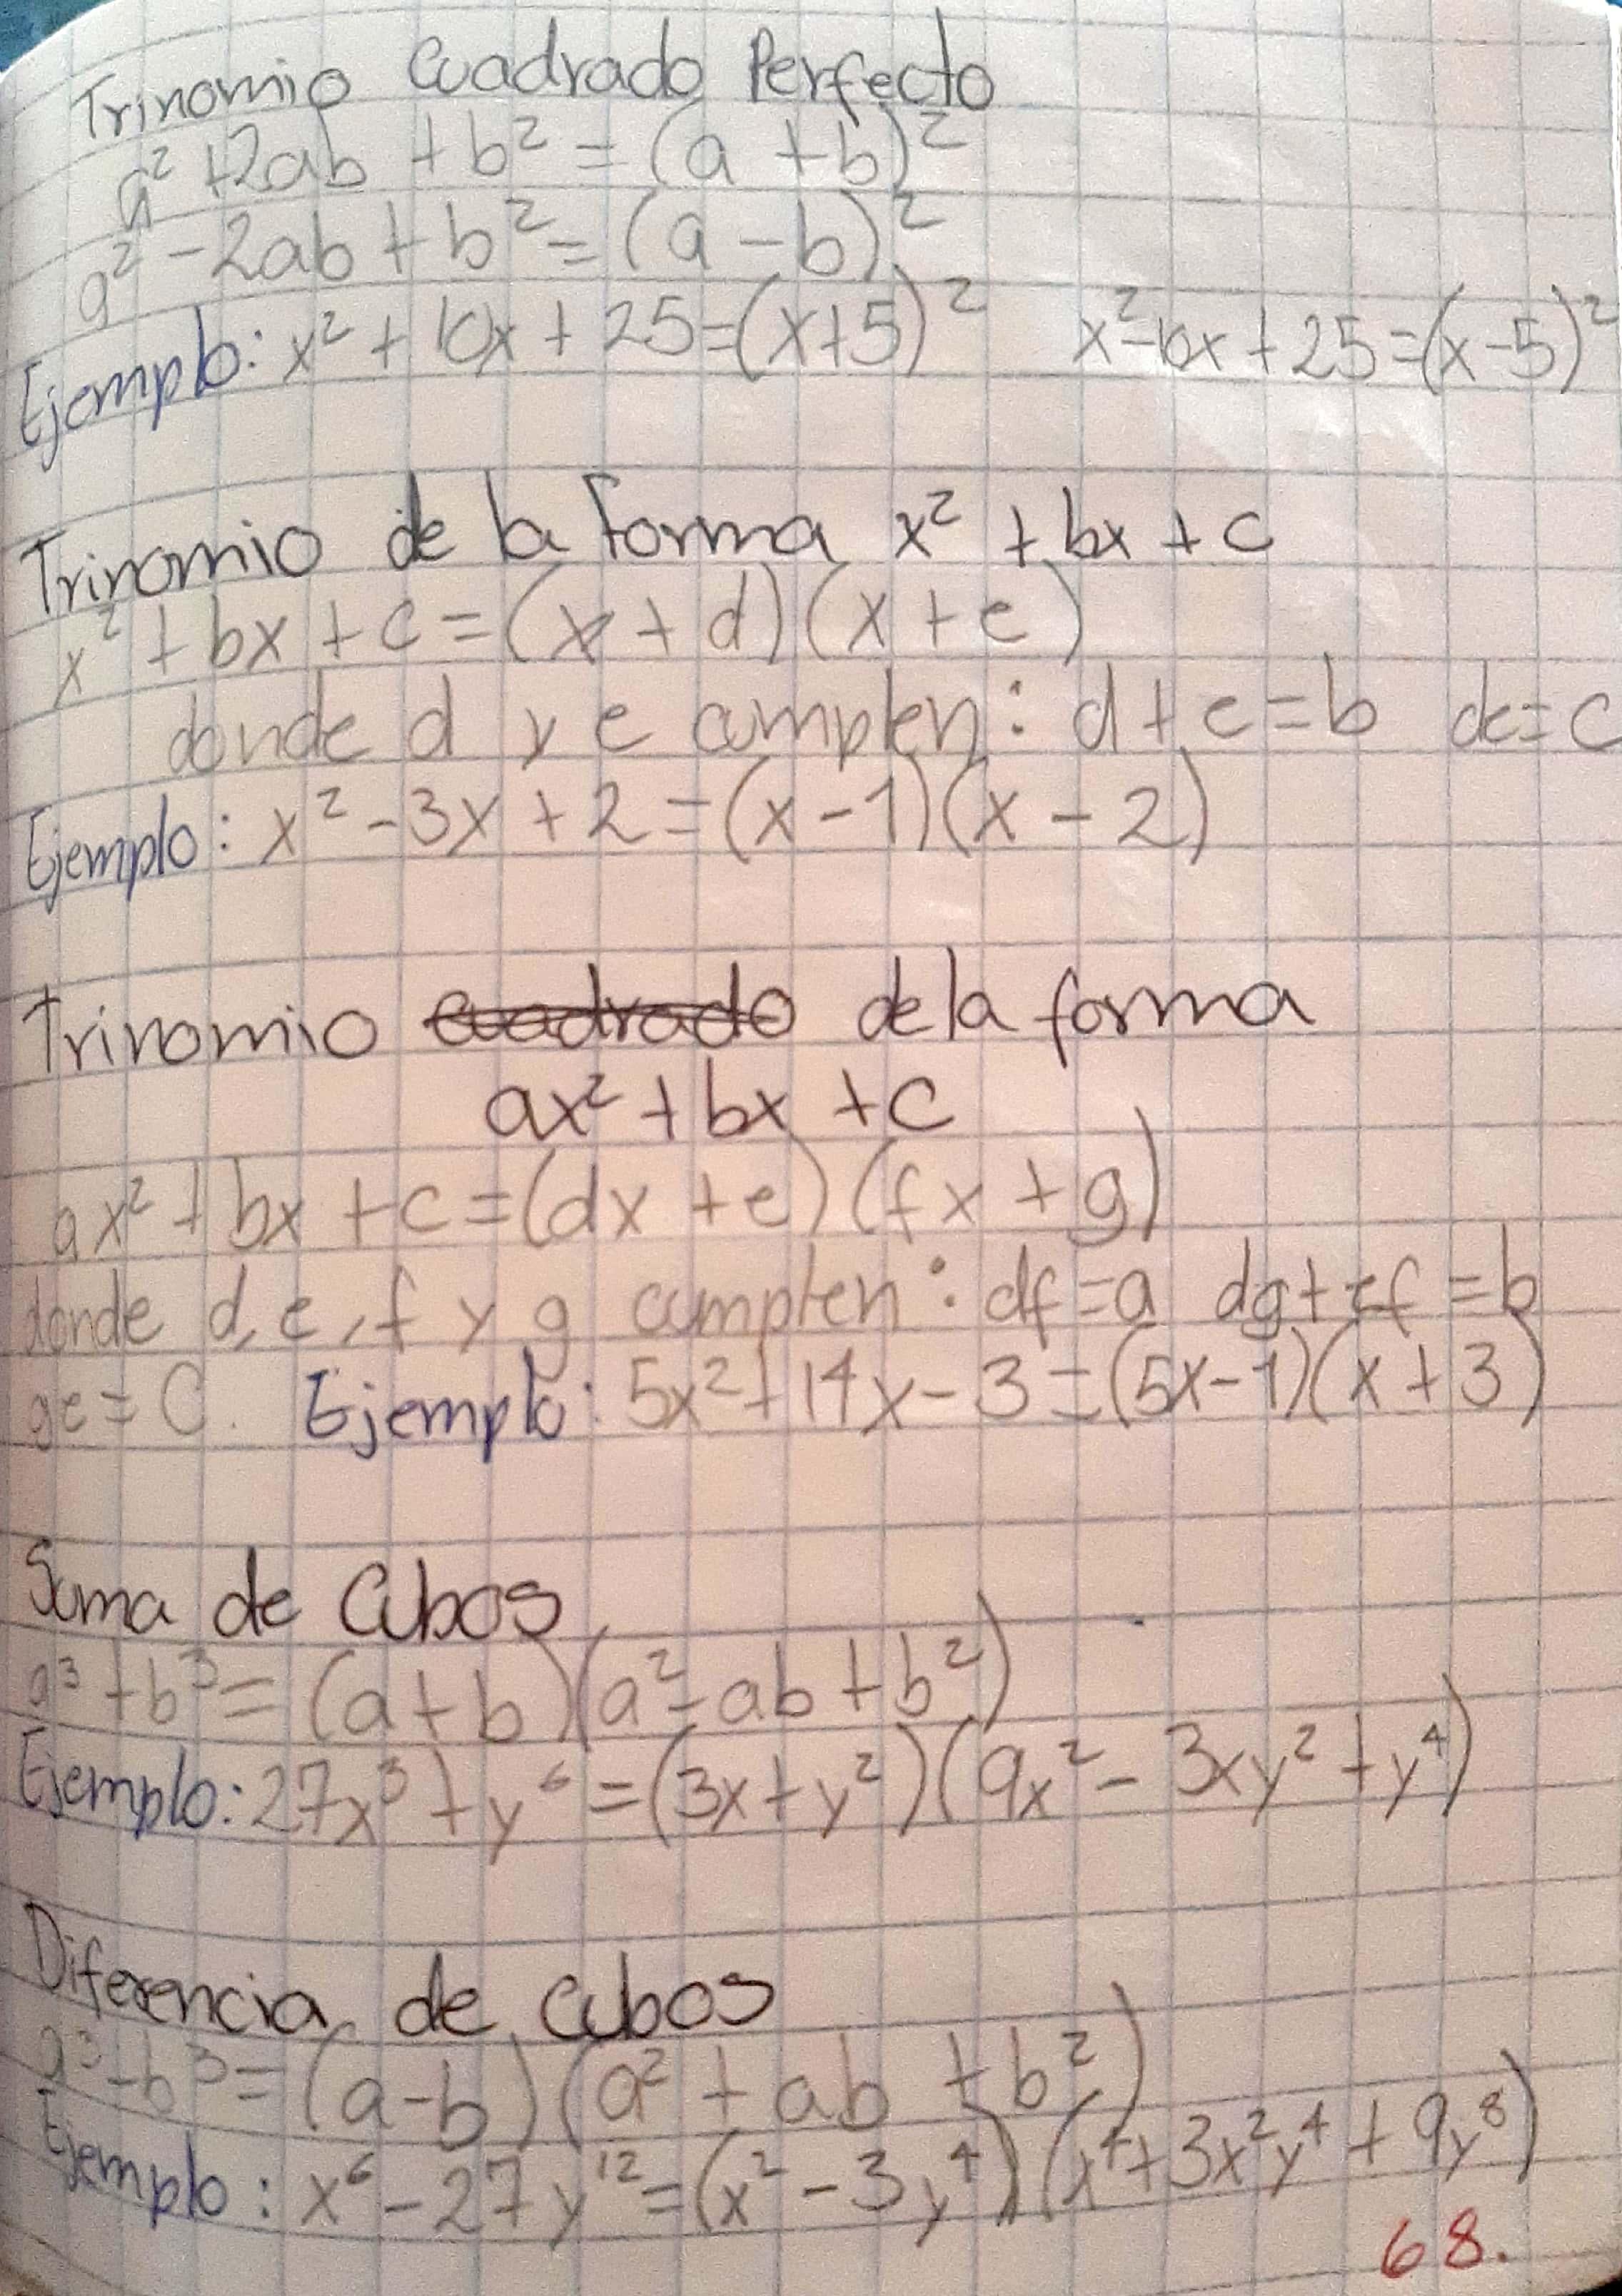 Trinomio Cuadrado Perfecto
a² + 2ab + b² = (a + b)²
a² - 2ab + b² = (a - b)²
Ejemplo: x² + 10x + 25 = (x+5)² x² - 10x + 25 = (x-5)²
Trinomio de la forma x² + bx + c
x² + bx + c = (x + d)(x + e)
donde d y e cumplen: d + e = b de = c
Ejemplo: x² - 3x + 2 = (x - 1)(x - 2)
Trinomio cuadrado de la forma
ax² + bx + c
ax² + bx + c = (dx + e)(fx + g)
donde d, e, f y g cumplen: df = a dg + ef = b
ge = C. Ejemplo: 5x² + 14x - 3 = (5x - 1)(x + 3)
Suma de Cubos
a³ + b³ = (a + b)(a² - ab + b²)
Ejemplo: 27x³ + y⁶ = (3x + y²)(9x² - 3xy² + y⁴)
Diferencia de cubos
a³ - b³ = (a - b)(a² + ab + b²)
Ejemplo: x⁶ - 27y¹² = (x² - 3y⁴)(x⁴ + 3x²y⁴ + 9y⁸)
68.